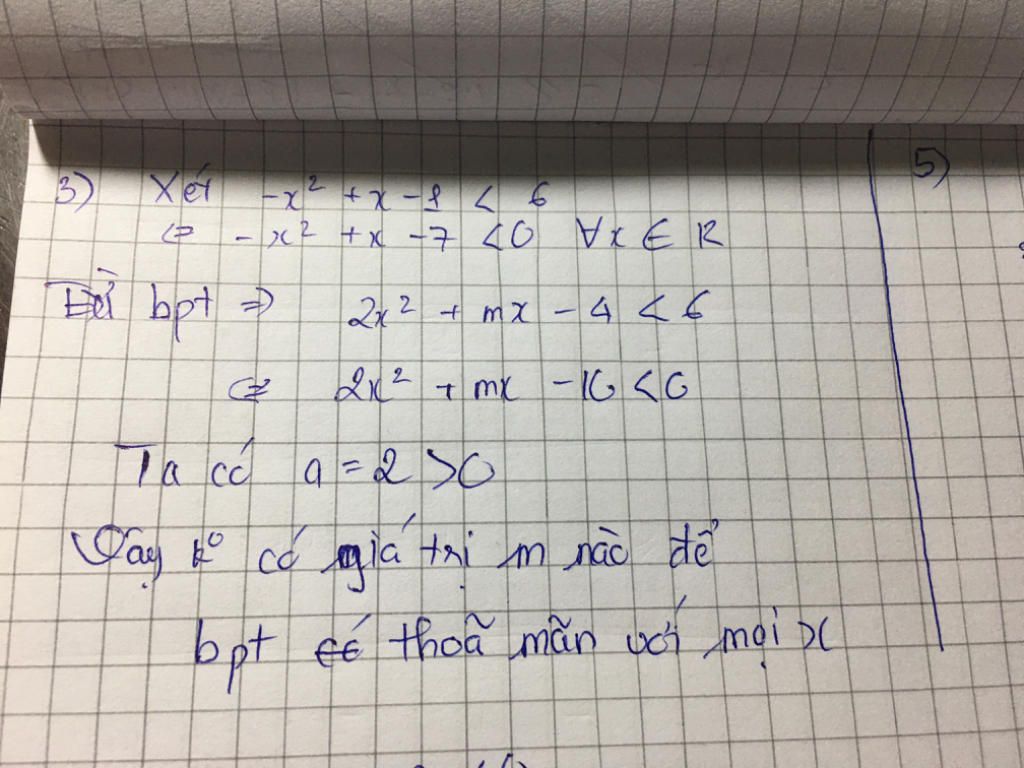 3) Xét -x² + x - 1 < 6
⇔ -x² + x - 7 < 0 ∀x ∈ R
Để bpt ⇒ 2x² + mx - 4 < 6
⇔ 2x² + mx - 10 < 0
Ta có a = 2 > 0
Vậy k⁰ có giá trị m nào để
bpt thoã mãn với mọi x
5)